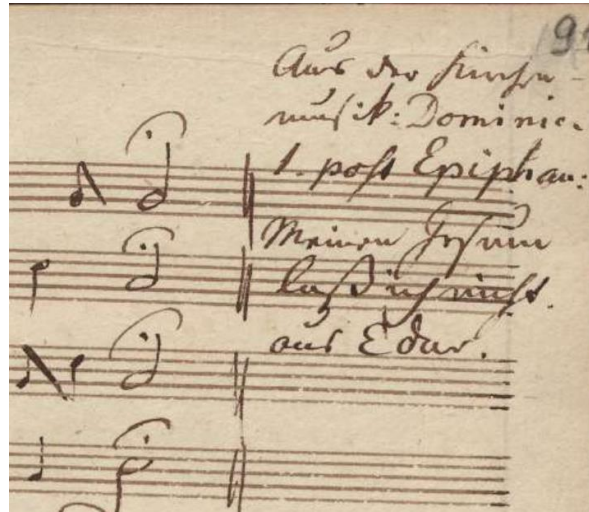 Aus der Kirchen-
musik: Dominic.
1. post Epiphan:
Meinen Jesum
laß ich nicht.
aus E dur.